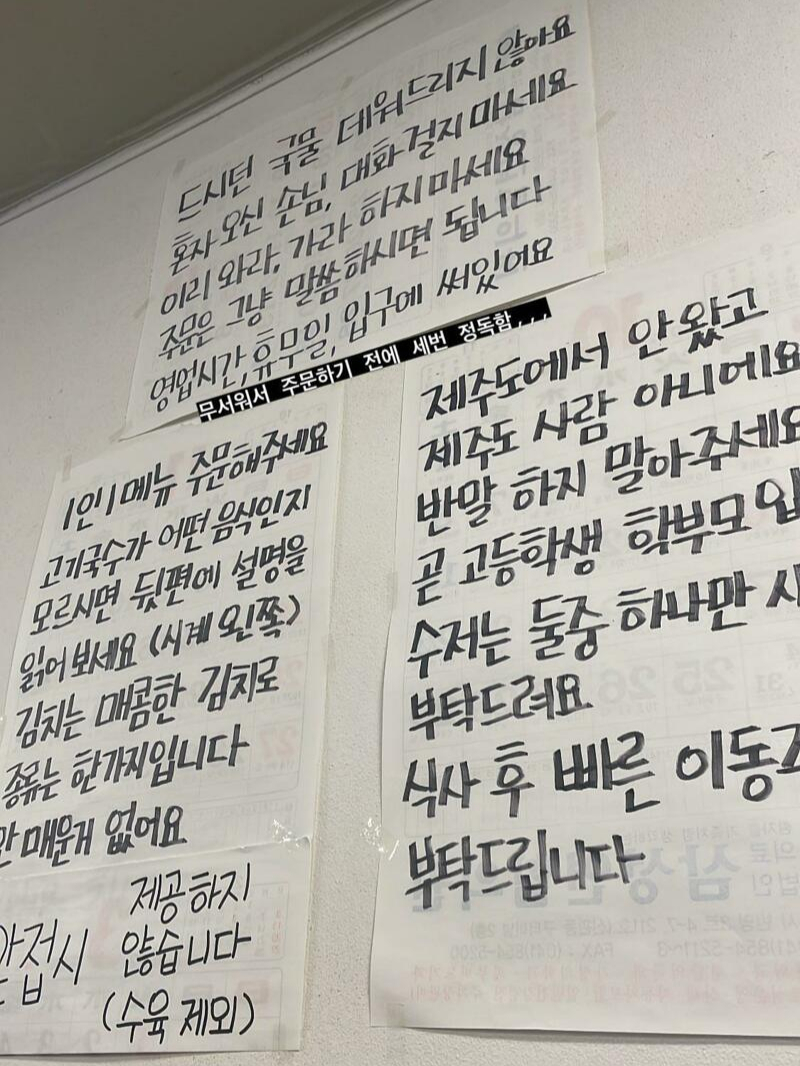 드시던 국물 데워드리지 않아요
혼자 오신 손님, 대화 걸지 마세요
이리 와라, 가라 하지마세요
주문은 그냥 말씀하시면 됩니다
영업시간, 휴무일, 입구에 써있어요
무서워서 주문하기 전에 세번 정독함,,,
1인 1메뉴 주문해주세요
고기국수가 어떤 음식인지
모르시면 뒷편에 설명을
읽어 보세요 (시계 왼쪽)
김치는 매콤한 김치로
종류는 한가지입니다
안 매운게 없어요
제공하지
않습니다
(수육 제외)
제주도에서 안 왔고
제주도 사람 아니에요
반말 하지 말아주세요
곧 고등학생 학부모
수저는 둘중 하나만
부탁드려요
식사 후 빠른 이동
부탁드립니다
25 26
31
27